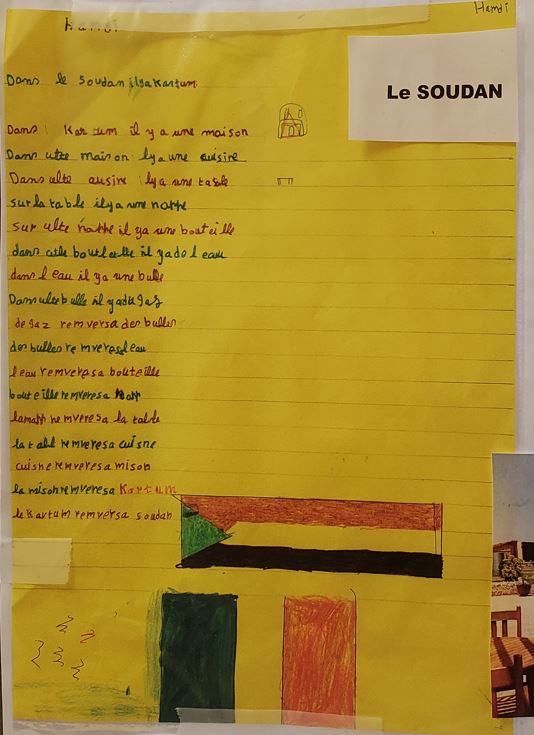 Hamdi
Hamdi
Le SOUDAN
Dans le soudan il ya kartum
Dans Kartum il y a une maison
Dans cette maison il ya une cuisire
Dans cette cuisire il ya une table
sur la table il ya une nappe
sur cette nappe il ya une bouteille
dans cette bouteille il ya de l eau
dans l eau il ya une bulle
Dans cette bulle il ya du gaz
de gaz remversa des bulles
des bulles remversa l eau
l eau remversa bouteille
bouteille remveresa napp
la napp remveresa la table
la tabl remveresa cuisne
cuisne remveresa mison
la mison remveresa Kartum
le kartum remversa soudan